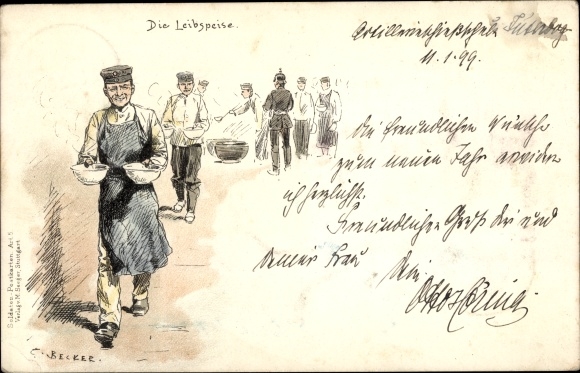 Die Leibspeise.
Artillerieschießschule Jüterbog
11.1.99.
Die freundlichen Wünsche
zum neuen Jahr erwidere
ich herzlichst.
Freundlichen Gruß Dir und
Deiner Frau
Dein
Otto
Soldaten-Postkarten Art. 5
Verlag v. M. Seeger, Stuttgart
C. BECKER.